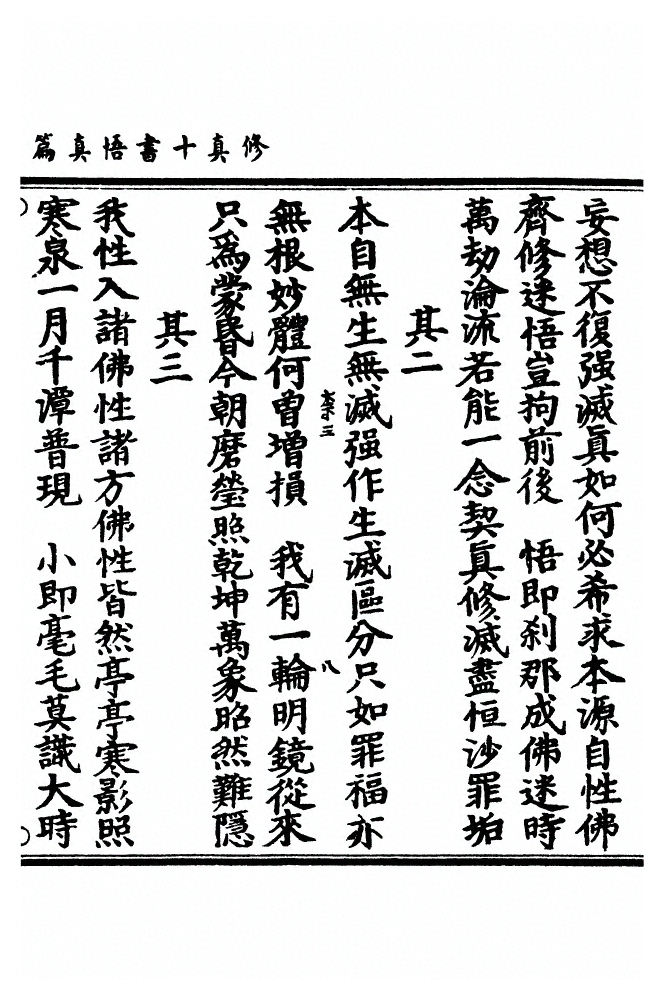 修真十書悟真篇
妄想不復强滅真如何必希求本源自性佛
齊修迷悟豈拘前後　悟即刹那成佛迷時
萬劫淪流若能一念契真修滅盡恒沙罪垢
其二
本自無生無滅强作生滅區分只如罪福亦
無根妙體何曾增損　我有一輪明鏡從來
只爲蒙昏今朝磨瑩照乾坤萬象昭然難隱
其三
我性入諸佛性諸方佛性皆然亭亭寒影照
寒泉一月千潭普現　小即毫毛莫識大時
柰三
八